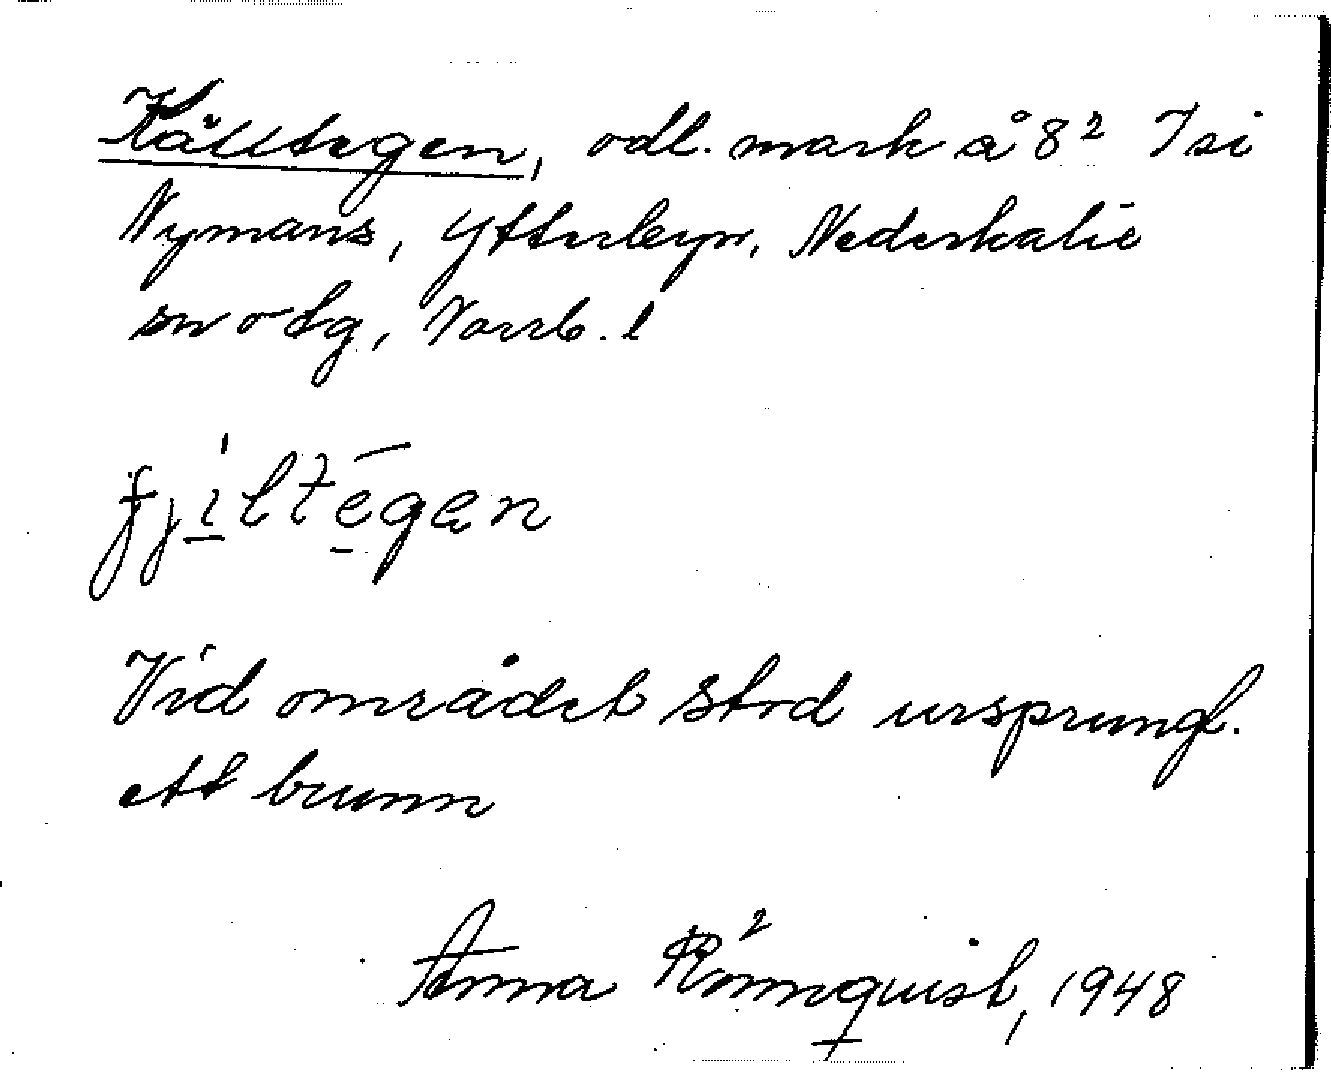 Källtegen, odl. mark å 8² Isi
Nymans, Ytterbyn, Nederkalix
sn o tg, Norrb. l
fjiltegen
Vid området stod ursprungl.
ett brunn
Anna Rönnquist, 1948